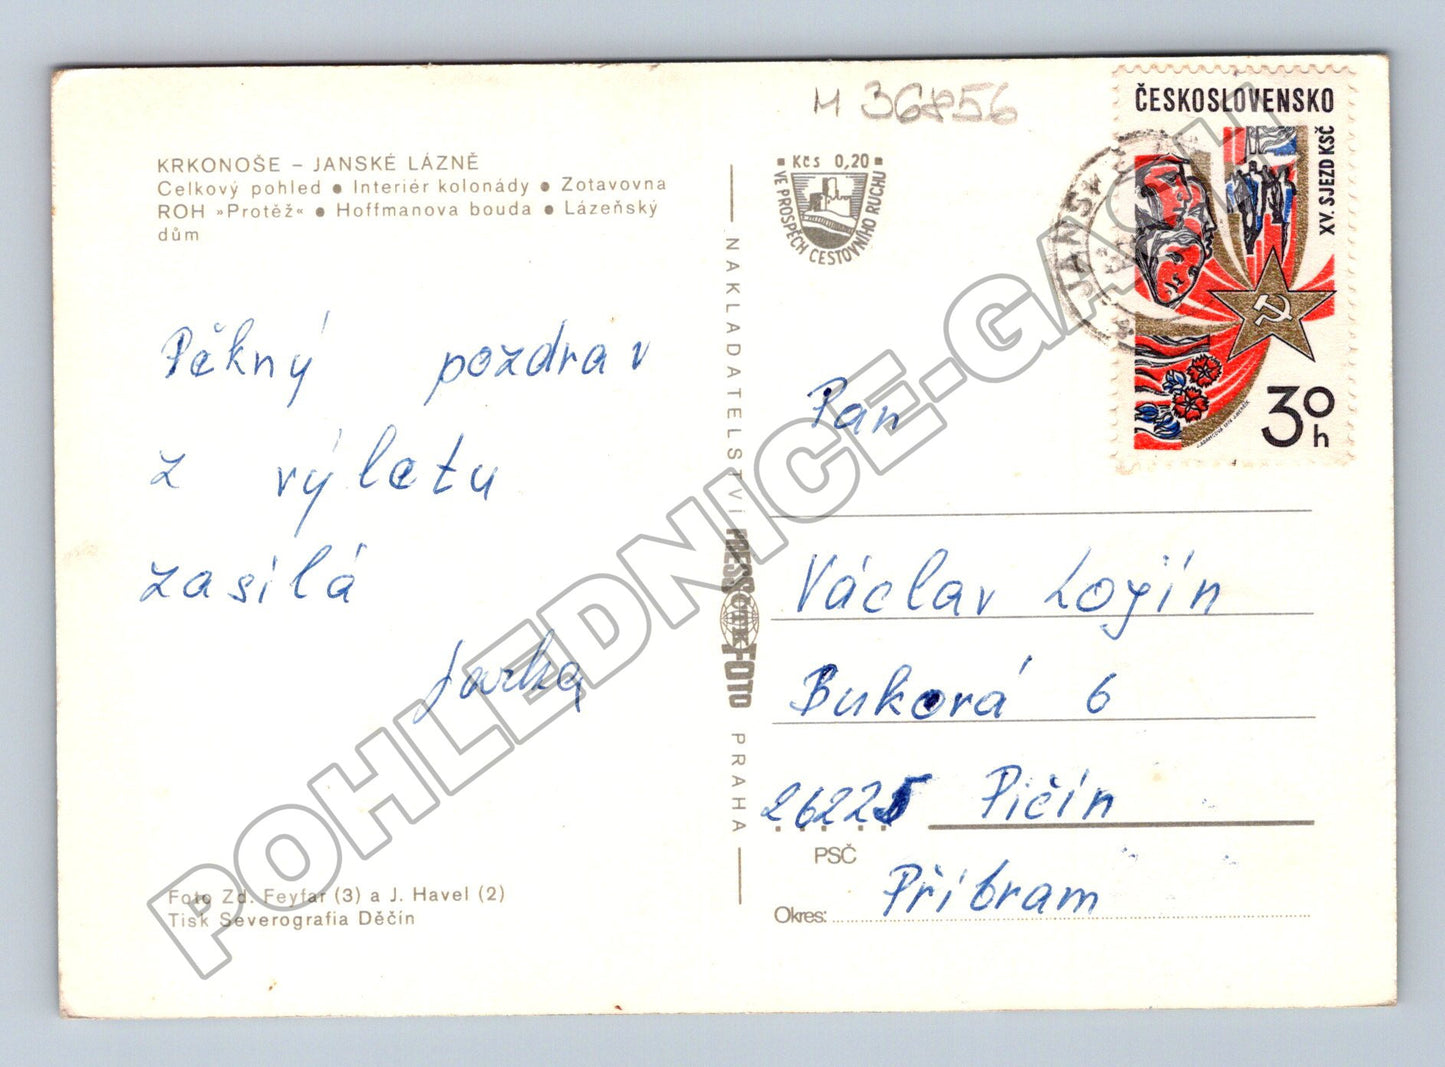 KRKONOŠE – JANSKÉ LÁZNĚ
Celkový pohled ● Interiér kolonády ● Zotavovna
ROH »Protěž« ● Hoffmanova bouda ● Lázeňský
dům
Pěkný pozdrav
z výletu
zasílá
Jarka
Foto Zd. Feyfar (3) a J. Havel (2)
Tisk Severografia Děčín
NAKLADATELSTVÍ PRESSFOTO PRAHA
M 36856
Kčs 0,20
VE PROSPĚCH CESTOVNÍHO RUCHU
ČESKOSLOVENSKO
XV. SJEZD KSČ
30 h
JANSKÉ
Pan
Václav Lojín
Buková 6
26225 Pičín
PSČ
Příbram
Okres:
POHLEDNICE-GASH